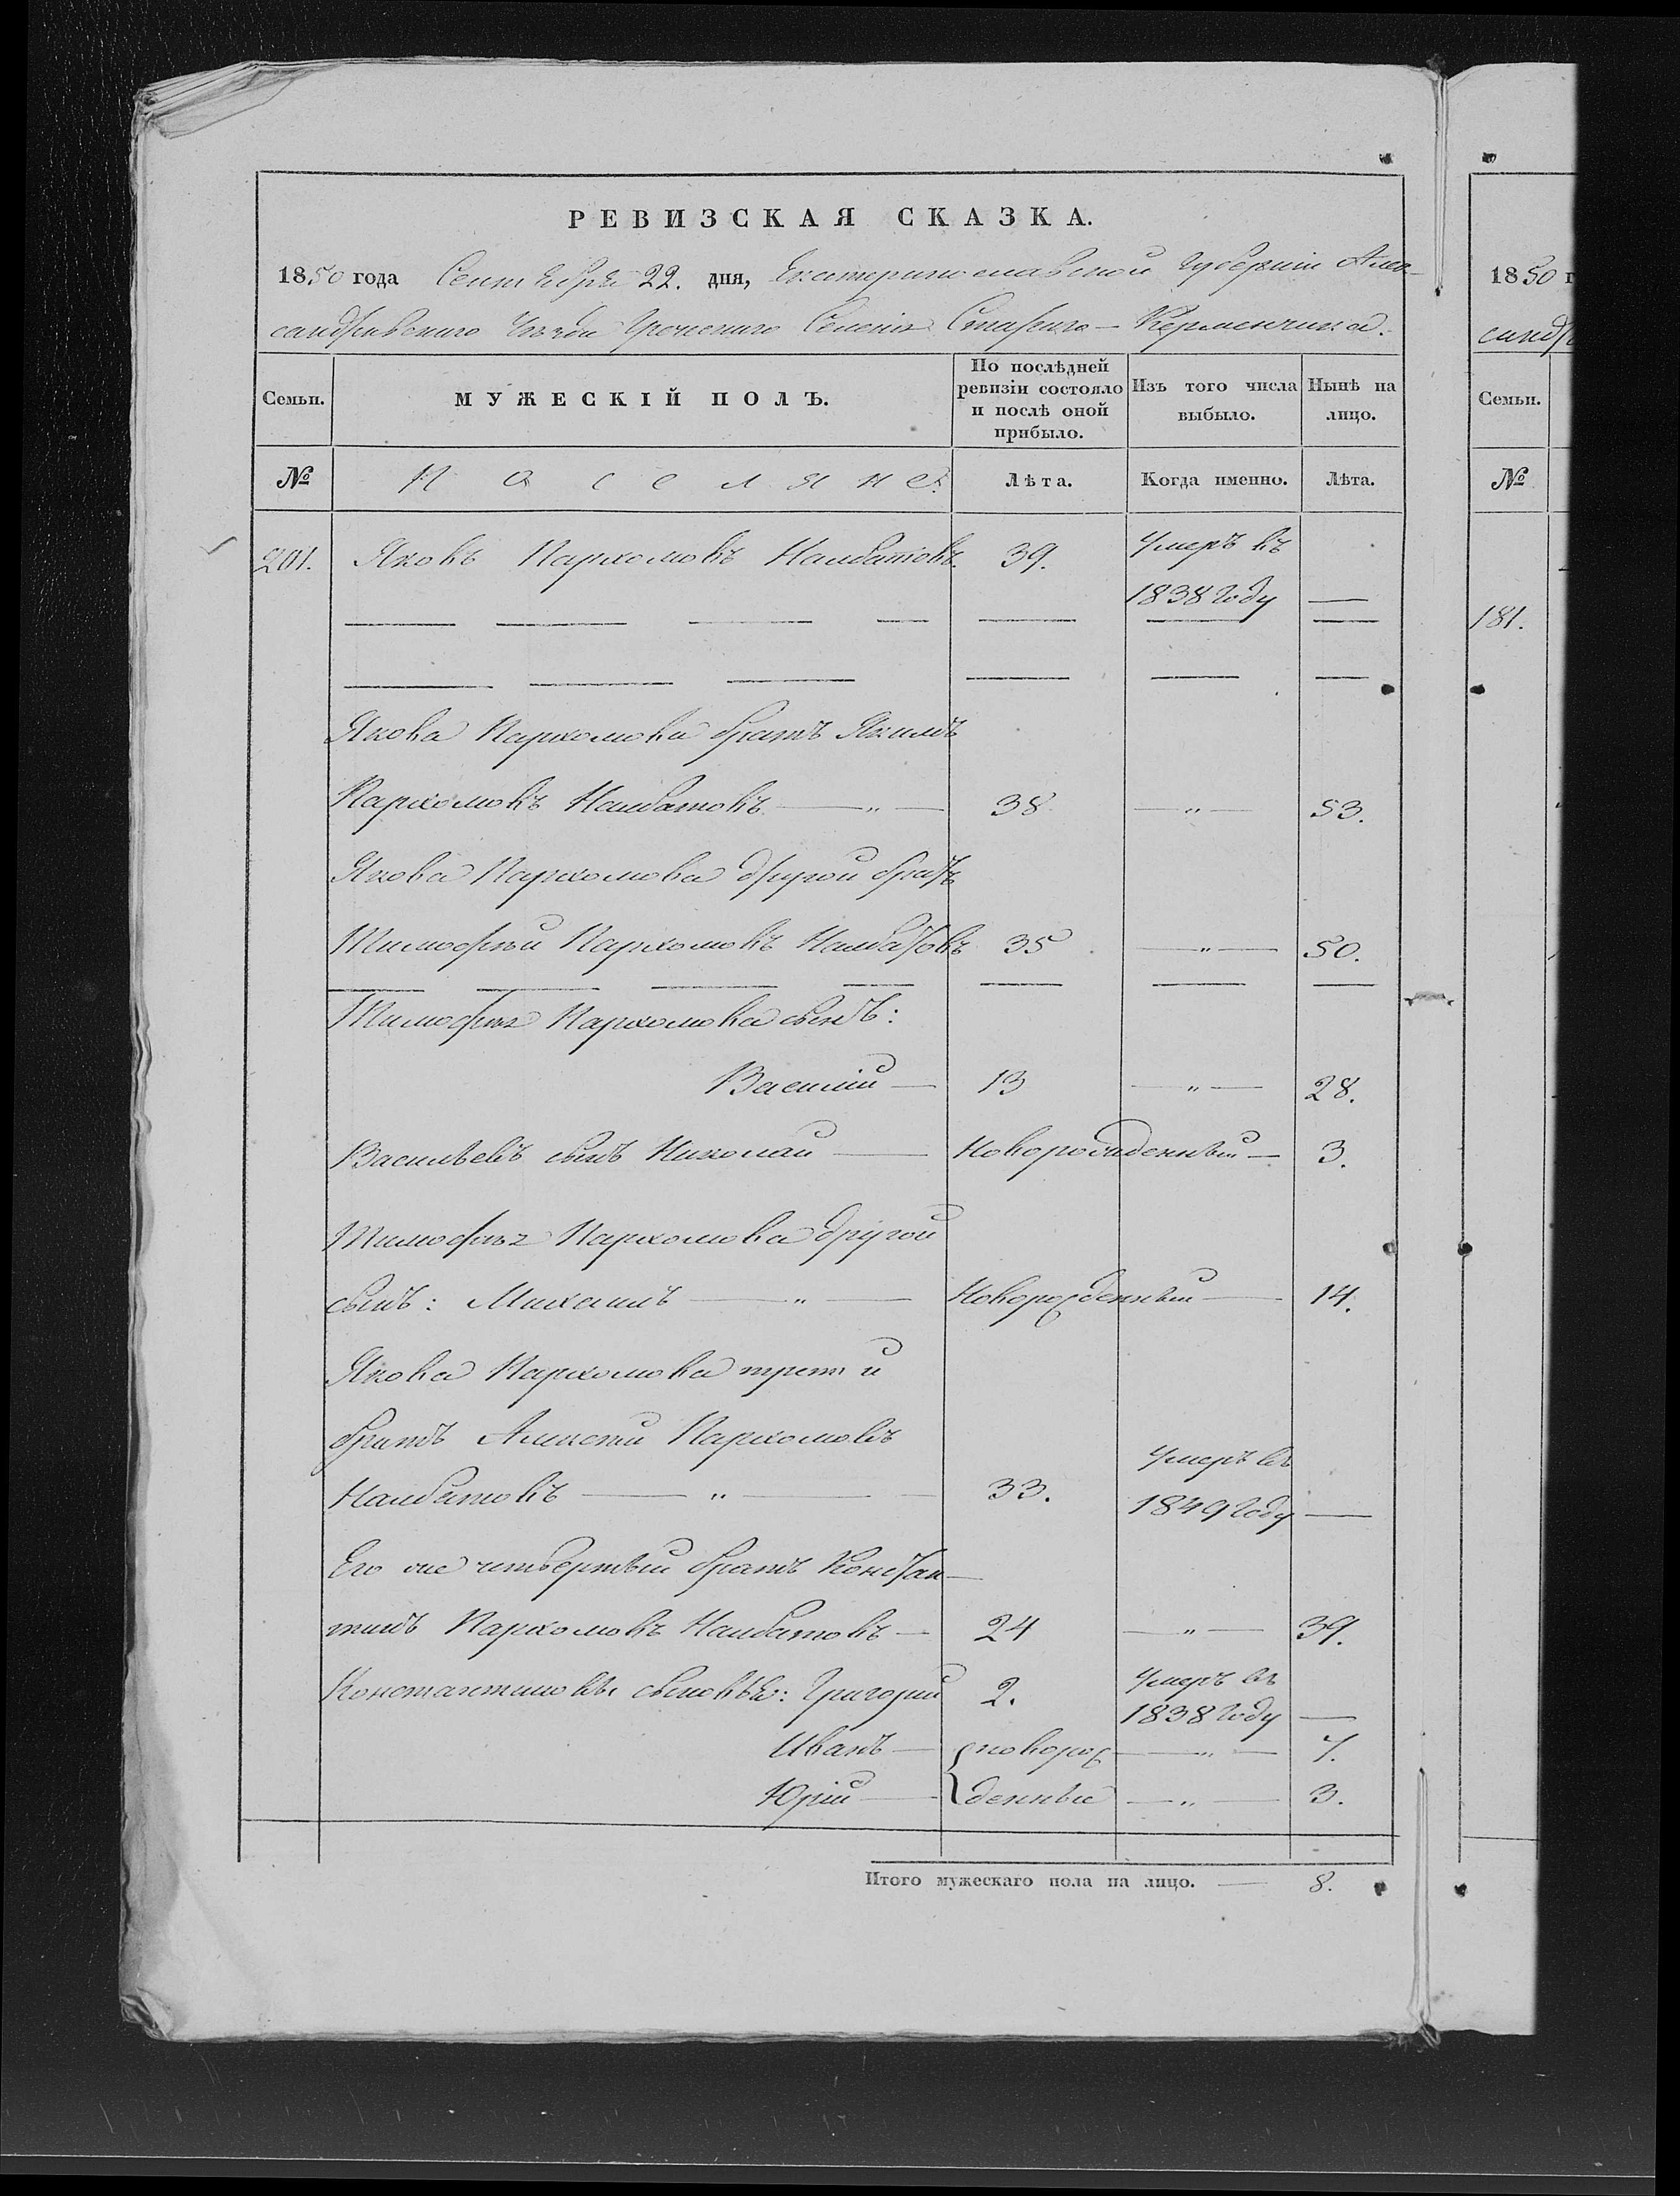 РЕВИЗСКАЯ СКАЗКА.
1850 года Сентября 22. дня, Екатеринославской Губерніи Алек-
сандровскаго Уезда Греческаго Селенія Стараго-Керменчика.
Семьи. МУЖЕСКІЙ ПОЛЪ. По послѣдней ревизіи состояло и послѣ оной прибыло. Изъ того числа выбыло. Нынѣ на лицо.
№ Поселяне. Лѣта. Когда именно. Лѣта.
201. Яковъ Пархомовъ Налбатовъ 39. Умеръ въ
1838 году —
Якова Пархомова братъ Якимъ
Пархомовъ Налбатовъ — „ — 38 — „ — 53.
Якова Пархомова другой братъ
Тимофѣй Пархомовъ Налбатовъ 35 — „ — 50.
Тимофѣя Пархомова сынъ:
Василій — 13 — „ — 28.
Васильевъ сынъ Николай — Новорожденный — 3.
Тимофѣя Пархомова другой
сынъ: Михаилъ — „ — Новорожденный — 14.
Якова Пархомова третій
братъ Алексѣй Пархомовъ
Налбатовъ — „ — 33. Умеръ въ
1849 году —
Его же четвертый братъ Констан-
тинъ Пархомовъ Налбатовъ — 24 — „ — 39.
Константиновы сыновья: Григорій 2. Умеръ въ
1838 году —
Иванъ — новорож — „ — 7.
Юрій — денные — „ — 3.
Итого мужескаго пола на лицо. — 8.
1850 г
сандр
Семьи.
№
181.